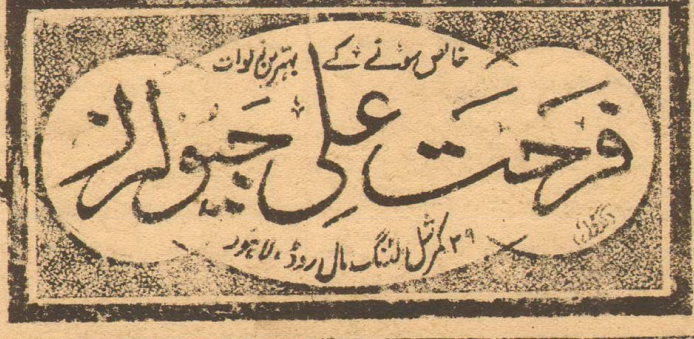 خالص سونے کے بہترین زیورات
فرحت علی جیولرز
۲۹ کمرشل بلڈنگ مال روڈ، لاہور